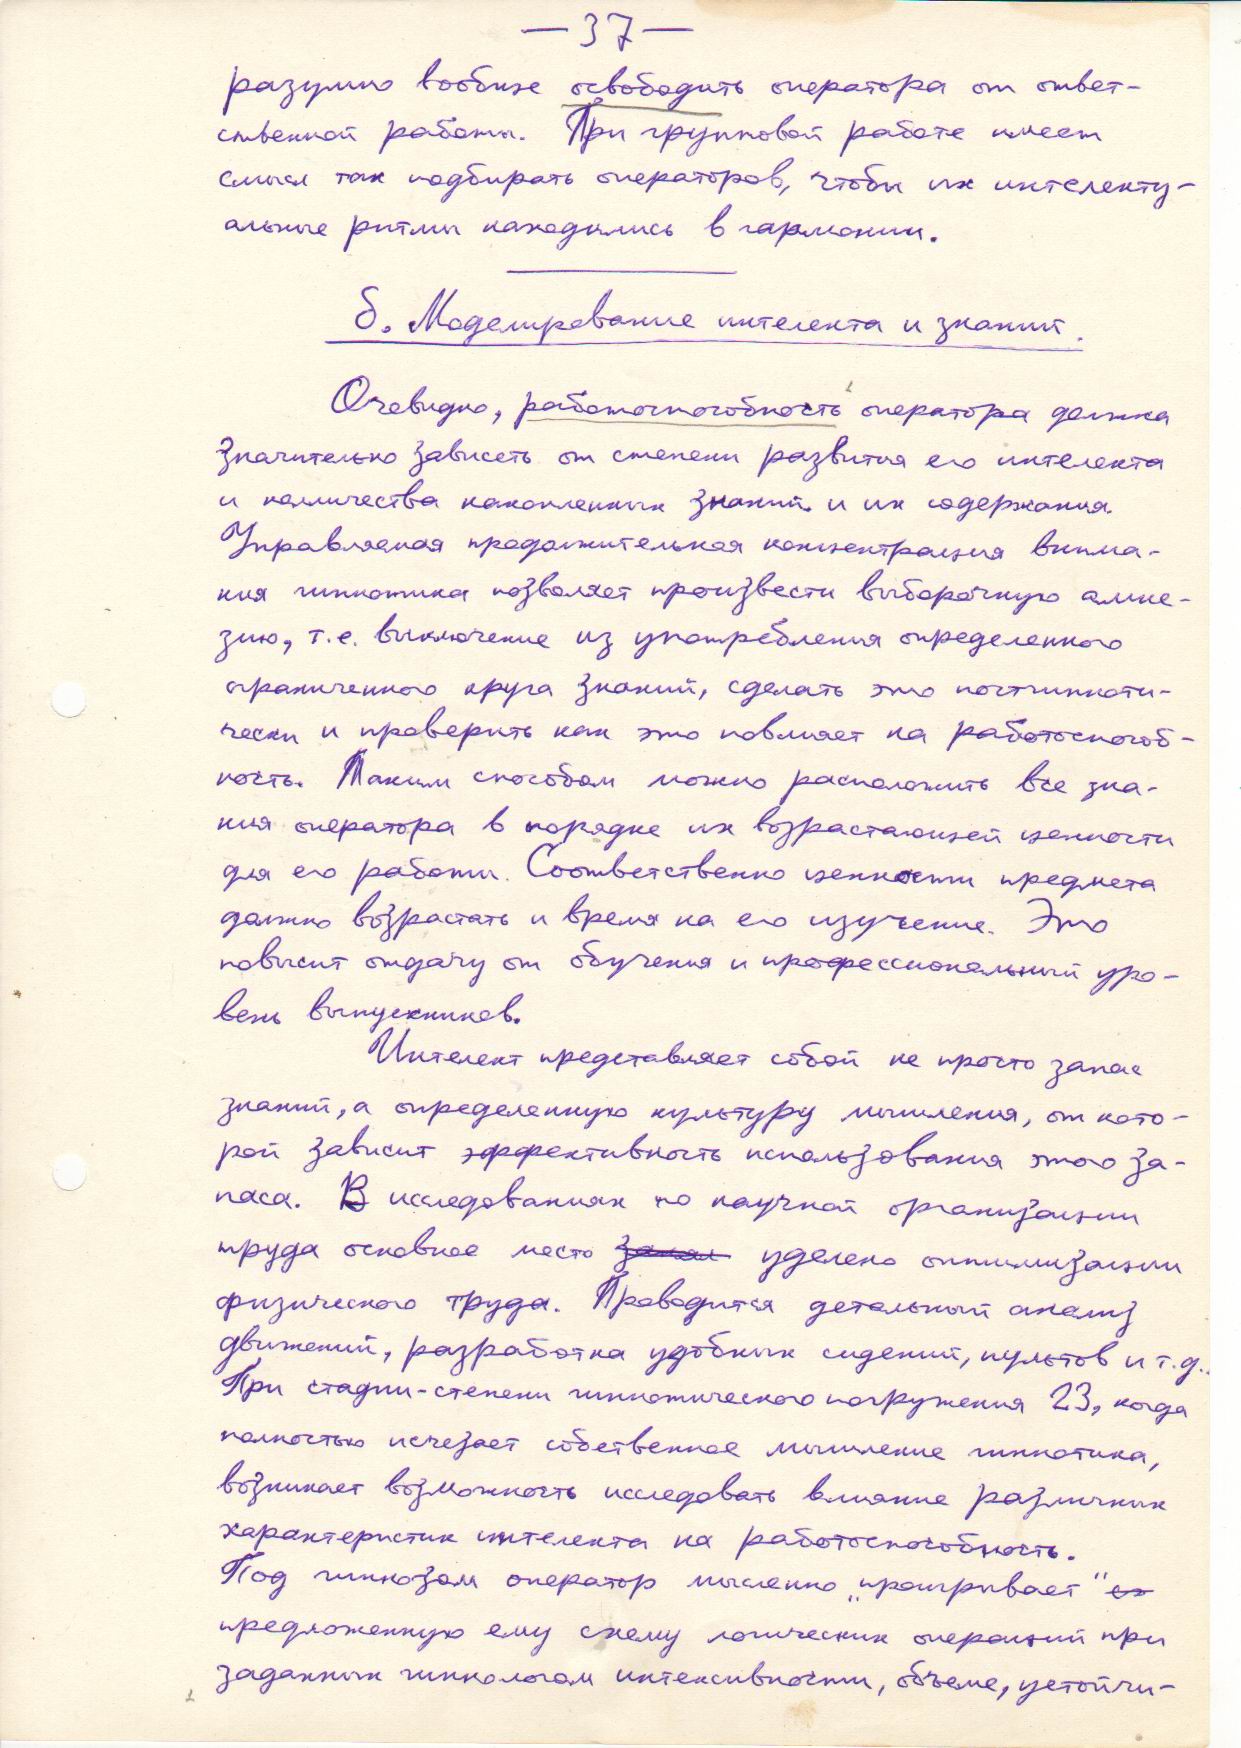 — 37 —
разумно вообще освободить оператора от ответ-
ственной работы. При групповой работе имеет
смысл так подбирать операторов, чтобы их интелекту-
альные ритмы находились в гармонии.
б. Моделирование интелекта и знаний.
Очевидно, работоспособность оператора должна
значительно зависеть от степени развития его интелекта
и количества накопленных знаний и их содержания.
Управляемая продолжительная концентрация внима-
ния гипнотика позволяет произвести выборочную амне-
зию, т.е. выключение из употребления определенного
ограниченного круга знаний, сделать это постгипноти-
чески и проверить как это повлияет на работоспособ-
ность. Таким способом можно расположить все зна-
ния оператора в порядке их возрастающей ценности
для его работы. Соответственно ценности предмета
должно возрастать и время на его изучение. Это
повысит отдачу от обучения и профессиональный уро-
вень выпускников.
Интелект представляет собой не просто запас
знаний, а определенную культуру мышления, от кото-
рой зависит эффективность использования этого за-
паса. В исследованиях по научной организации
труда основное место уделено оптимизации
физического труда. Проводится детальный анализ
движений, разработка удобных сидений, пультов и т.д..
При стадии-степени гипнотического погружения 23, когда
полностью исчезает собственное мышление гипнотика,
возникает возможность исследовать влияние различных
характеристик интелекта на работоспособность.
Под гипнозом оператор мысленно „проигрывает“
предложенную ему схему логических операций при
заданных гипнологом интенсивности, объеме, устойчи-